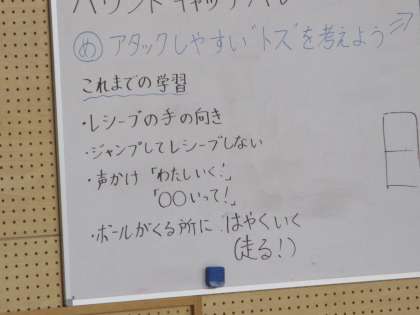 バウンドキャッチバレー
め アタックしやすい"トス"を考えよう
これまでの学習
・レシーブの手の向き
・ジャンプしてレシーブしない
・声かけ「わたしいく!」
「○○いって!」
・ボールがくる所に はやくいく
(走る!)